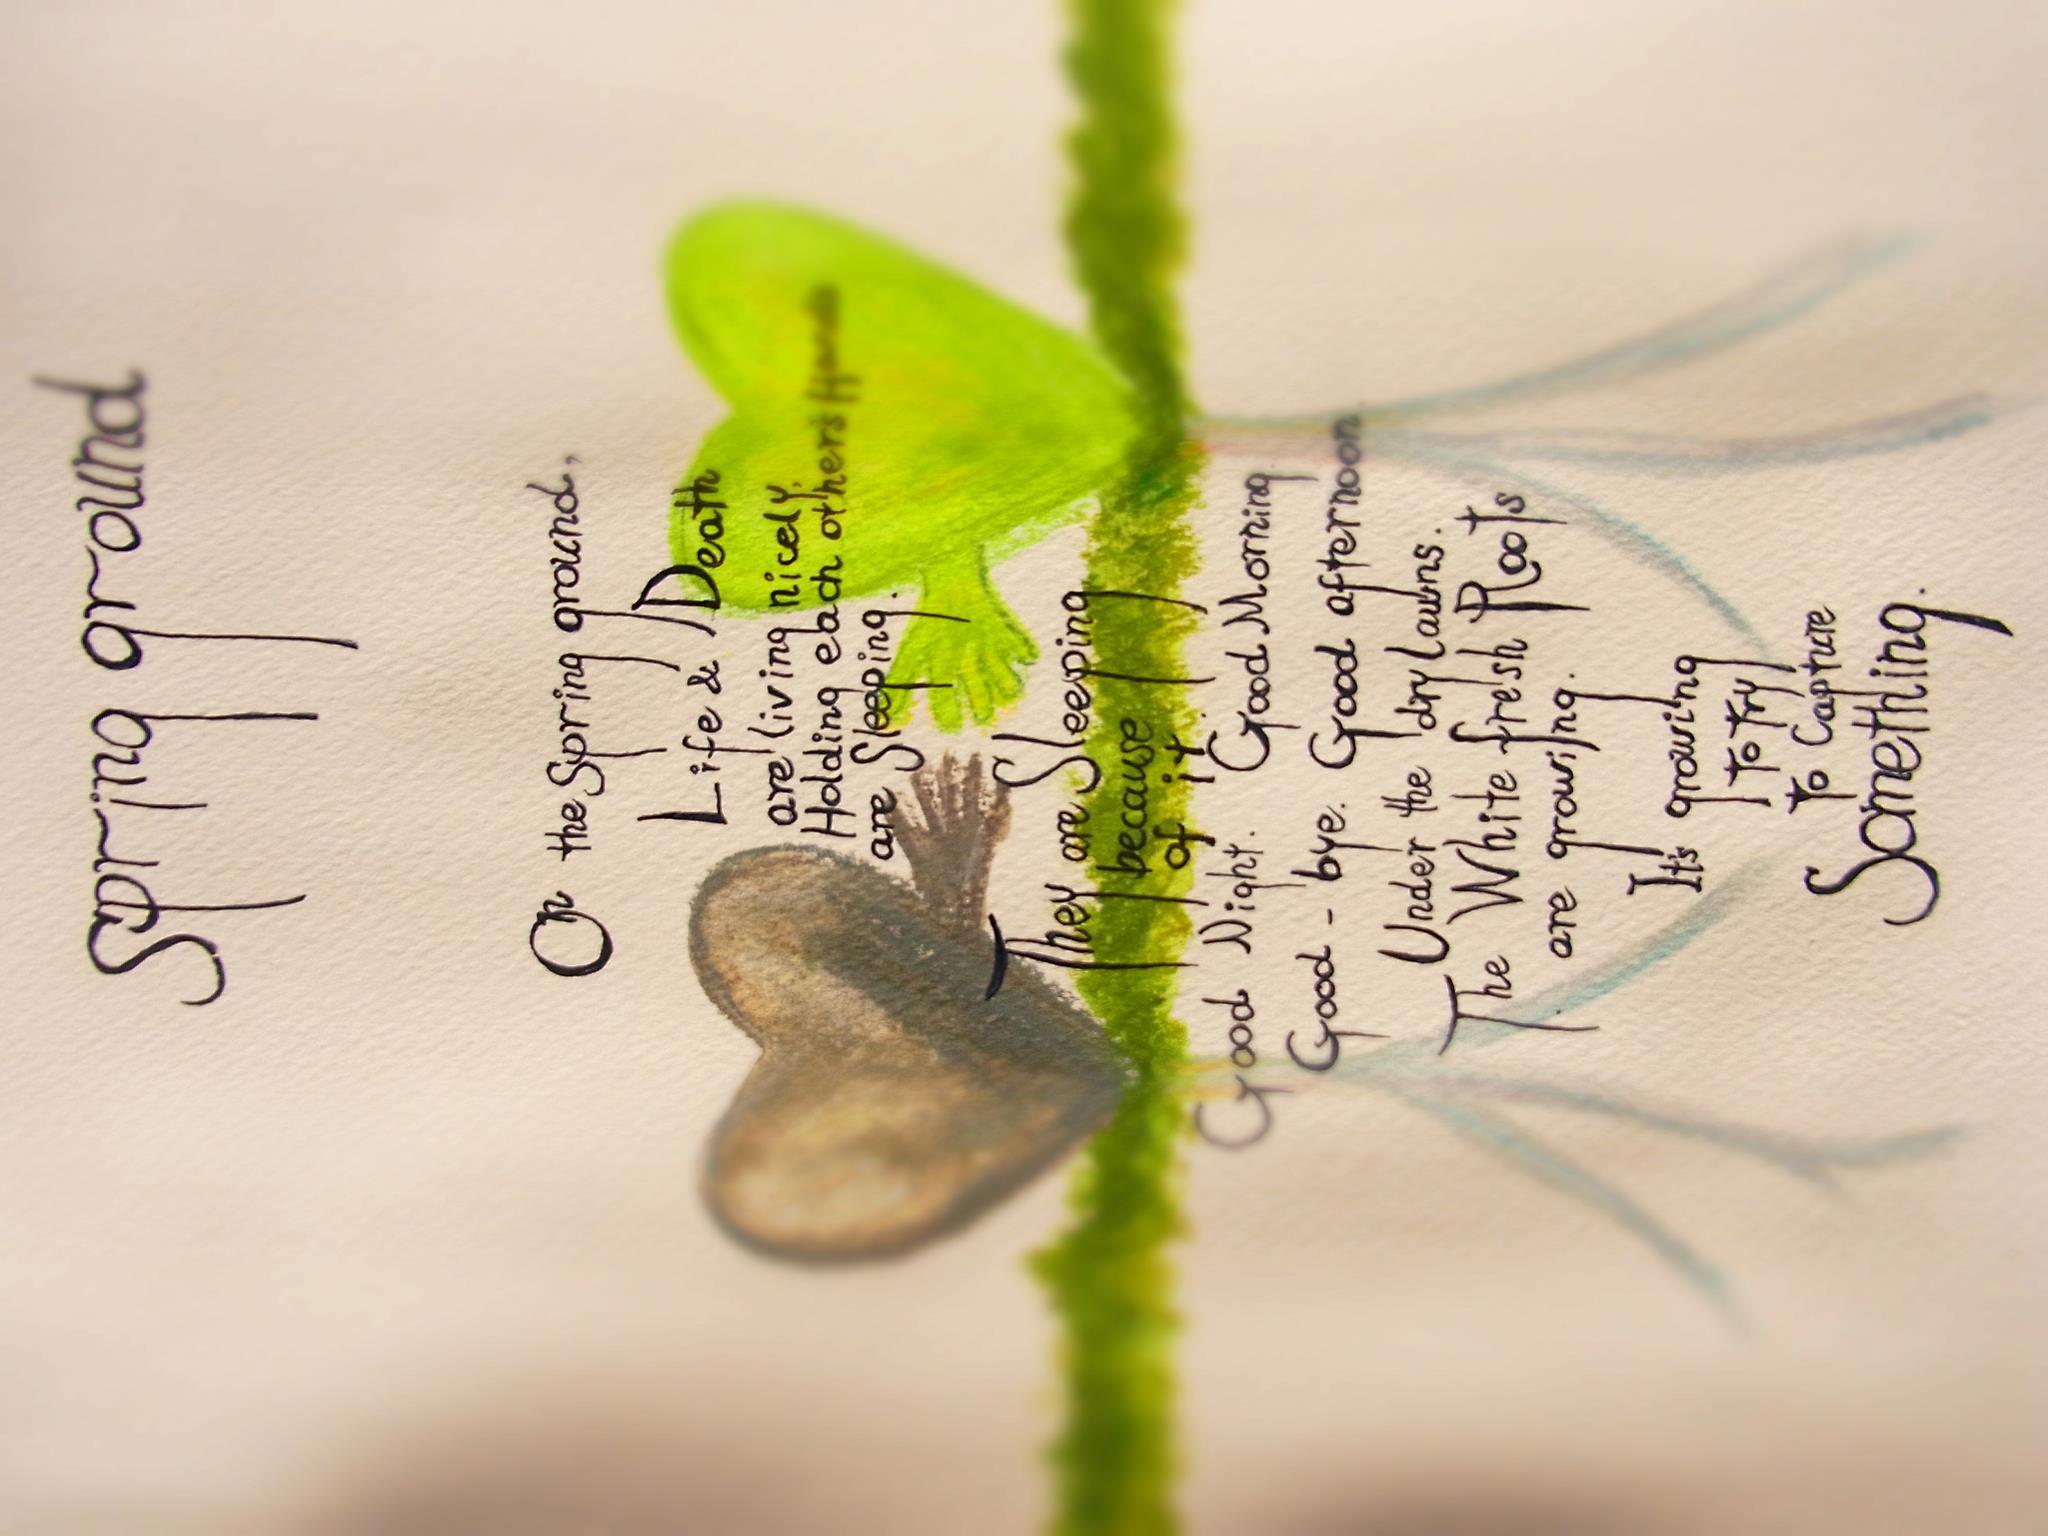 Spring ground
On the Spring ground,
Life & Death
are living nicely.
Holding each others Hands
are Sleeping.
They are Sleeping
because
of it.
Good Night. Good Morning.
Good-bye. Good afternoon
Under the dry Lawns.
The White fresh Roots
are growing.
It's growing
To Try
To Capture
Something.